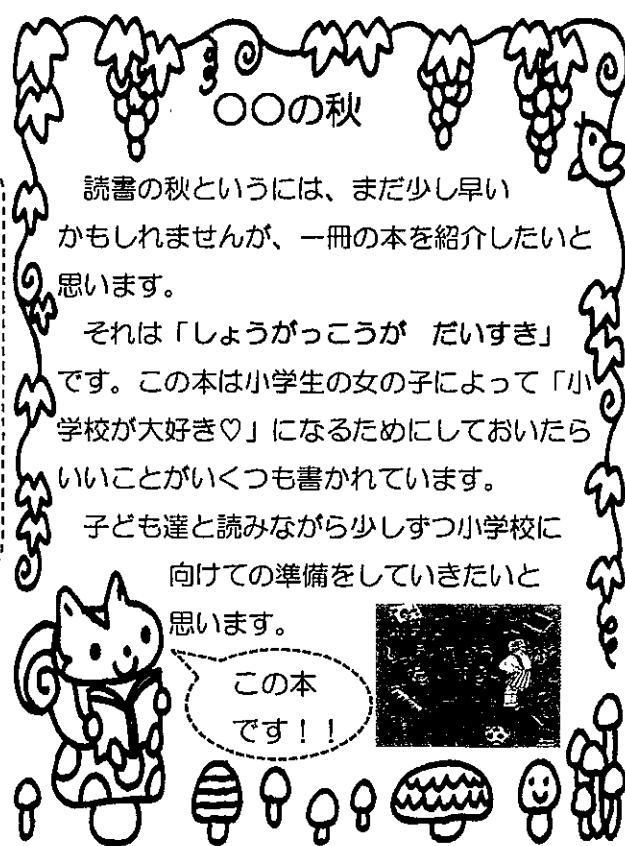 ○○の秋
読書の秋というには、まだ少し早い
かもしれませんが、一冊の本を紹介したいと
思います。
それは「しょうがっこうが　だいすき」
です。この本は小学生の女の子によって「小
学校が大好き♡」になるためにしておいたら
いいことがいくつも書かれています。
子ども達と読みながら少しずつ小学校に
向けての準備をしていきたいと
思います。
この本
です！！